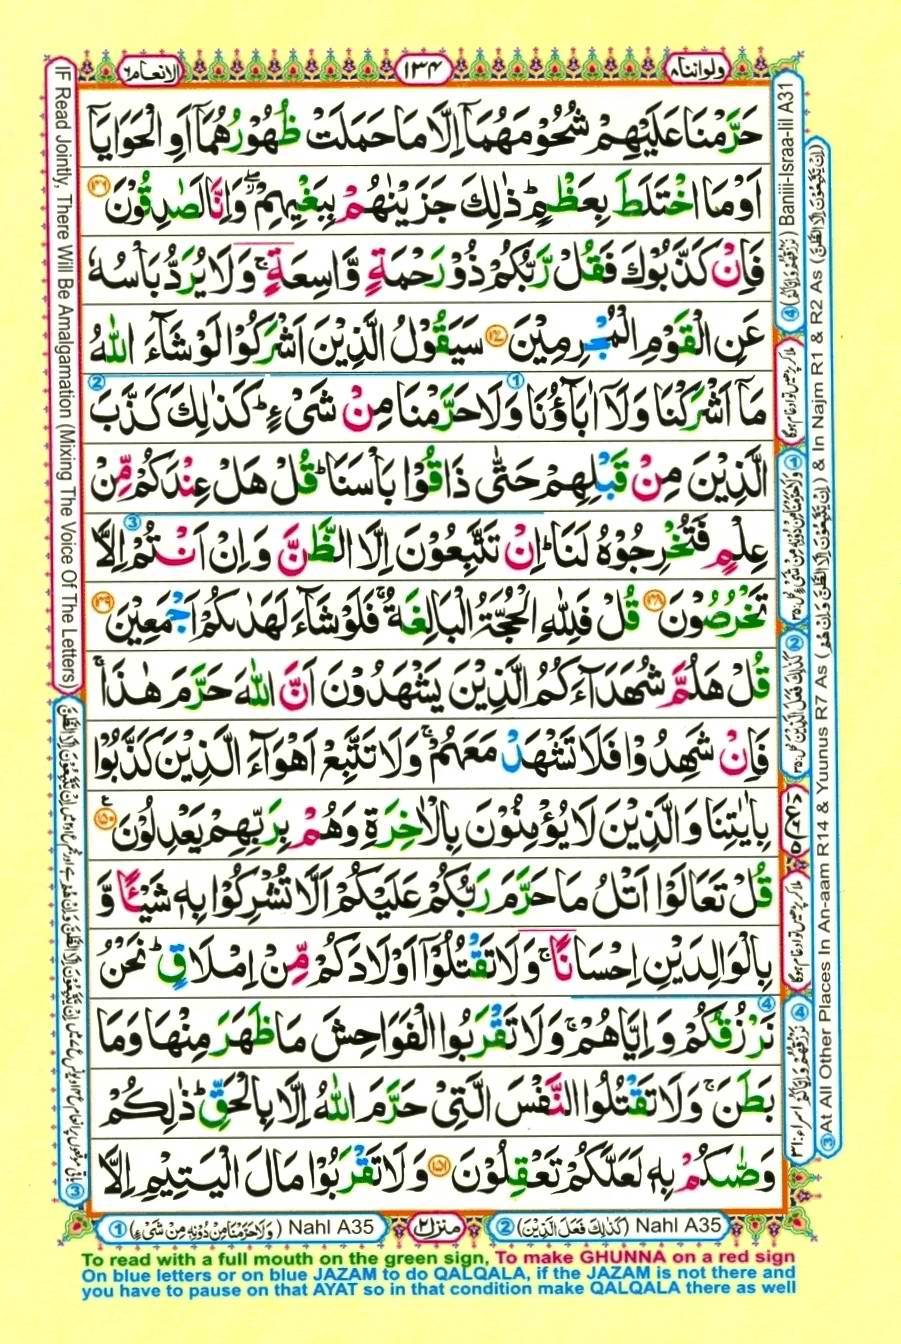 ولواننا ٨
١٣٤
الانعام ٦
حَرَّمْنَا عَلَيْهِمْ شُحُوْمَهُمَاۤ اِلَّا مَا حَمَلَتْ ظُهُوْرُهُمَاۤ اَوِ الْحَوَايَاۤ
اَوْ مَا اخْتَلَطَ بِعَظْمٍ ؕ ذٰلِكَ جَزَيْنٰهُمْ بِبَغْيِهِمْ ۖ وَاِنَّا لَصٰدِقُوْنَ ﴿۱۴۶﴾
فَاِنْ كَذَّبُوْكَ فَقُلْ رَّبُّكُمْ ذُوْ رَحْمَةٍ وَّاسِعَةٍ ۚ وَلَا يُرَدُّ بَاْسُهٗ
عَنِ الْقَوْمِ الْمُجْرِمِيْنَ ﴿۱۴۷﴾ سَيَقُوْلُ الَّذِيْنَ اَشْرَكُوْا لَوْ شَآءَ اللّٰهُ
مَاۤ اَشْرَكْنَا وَلَاۤ اٰبَآؤُنَا وَلَا حَرَّمْنَا مِنْ شَيْءٍ ؕ كَذٰلِكَ كَذَّبَ
الَّذِيْنَ مِنْ قَبْلِهِمْ حَتّٰى ذَاقُوْا بَاْسَنَا ؕ قُلْ هَلْ عِنْدَكُمْ مِّنْ
عِلْمٍ فَتُخْرِجُوْهُ لَنَا ؕ اِنْ تَتَّبِعُوْنَ اِلَّا الظَّنَّ وَاِنْ اَنْتُمْ اِلَّا
تَخْرُصُوْنَ ﴿۱۴۸﴾ قُلْ فَلِلّٰهِ الْحُجَّةُ الْبَالِغَةُ ۚ فَلَوْ شَآءَ لَهَدٰىكُمْ اَجْمَعِيْنَ ﴿۱۴۹﴾
قُلْ هَلُمَّ شُهَدَآءَكُمُ الَّذِيْنَ يَشْهَدُوْنَ اَنَّ اللّٰهَ حَرَّمَ هٰذَا ۚ
فَاِنْ شَهِدُوْا فَلَا تَشْهَدْ مَعَهُمْ ۚ وَلَا تَتَّبِعْ اَهْوَآءَ الَّذِيْنَ كَذَّبُوْا
بِاٰيٰتِنَا وَالَّذِيْنَ لَا يُؤْمِنُوْنَ بِالْاٰخِرَةِ وَهُمْ بِرَبِّهِمْ يَعْدِلُوْنَ ﴿۱۵۰﴾
قُلْ تَعَالَوْا اَتْلُ مَا حَرَّمَ رَبُّكُمْ عَلَيْكُمْ اَلَّا تُشْرِكُوْا بِهٖ شَيْـًٔا وَّ
بِالْوَالِدَيْنِ اِحْسَانًا ۚ وَلَا تَقْتُلُوْۤا اَوْلَادَكُمْ مِّنْ اِمْلَاقٍ ؕ نَحْنُ
نَرْزُقُكُمْ وَاِيَّاهُمْ ۚ وَلَا تَقْرَبُوا الْفَوَاحِشَ مَا ظَهَرَ مِنْهَا وَمَا
بَطَنَ ۚ وَلَا تَقْتُلُوا النَّفْسَ الَّتِيْ حَرَّمَ اللّٰهُ اِلَّا بِالْحَقِّ ؕ ذٰلِكُمْ
وَصّٰىكُمْ بِهٖ لَعَلَّكُمْ تَعْقِلُوْنَ ﴿۱۵۱﴾ وَلَا تَقْرَبُوْا مَالَ الْيَتِيْمِ اِلَّا
① (وَلَا حَرَّمْنَا مِنْ دُوْنِهٖ مِنْ شَيْءٍ) Nahl A35
منزل ٢
② (كَذٰلِكَ فَعَلَ الَّذِيْنَ) Nahl A35
To read with a full mouth on the green sign, To make GHUNNA on a red sign
On blue letters or on blue JAZAM to do QALQALA, if the JAZAM is not there and
you have to pause on that AYAT so in that condition make QALQALA there as well
IF Read Jointly, There Will Be Amalgamation (Mixing The Voice Of The Letters)
④ (نَرْزُقُهُمْ وَاِيَّاكُمْ) Baniii-Israa-Iil A31
③ At All Other Places In An-aam R14 & Yuunus R7 As (اِنْ يَّتَّبِعُوْنَ اِلَّا الظَّنَّ وَاِنْ هُمْ) & In Najm R1 & R2 As (اِنْ يَّتَّبِعُوْنَ اِلَّا الظَّنَّ)